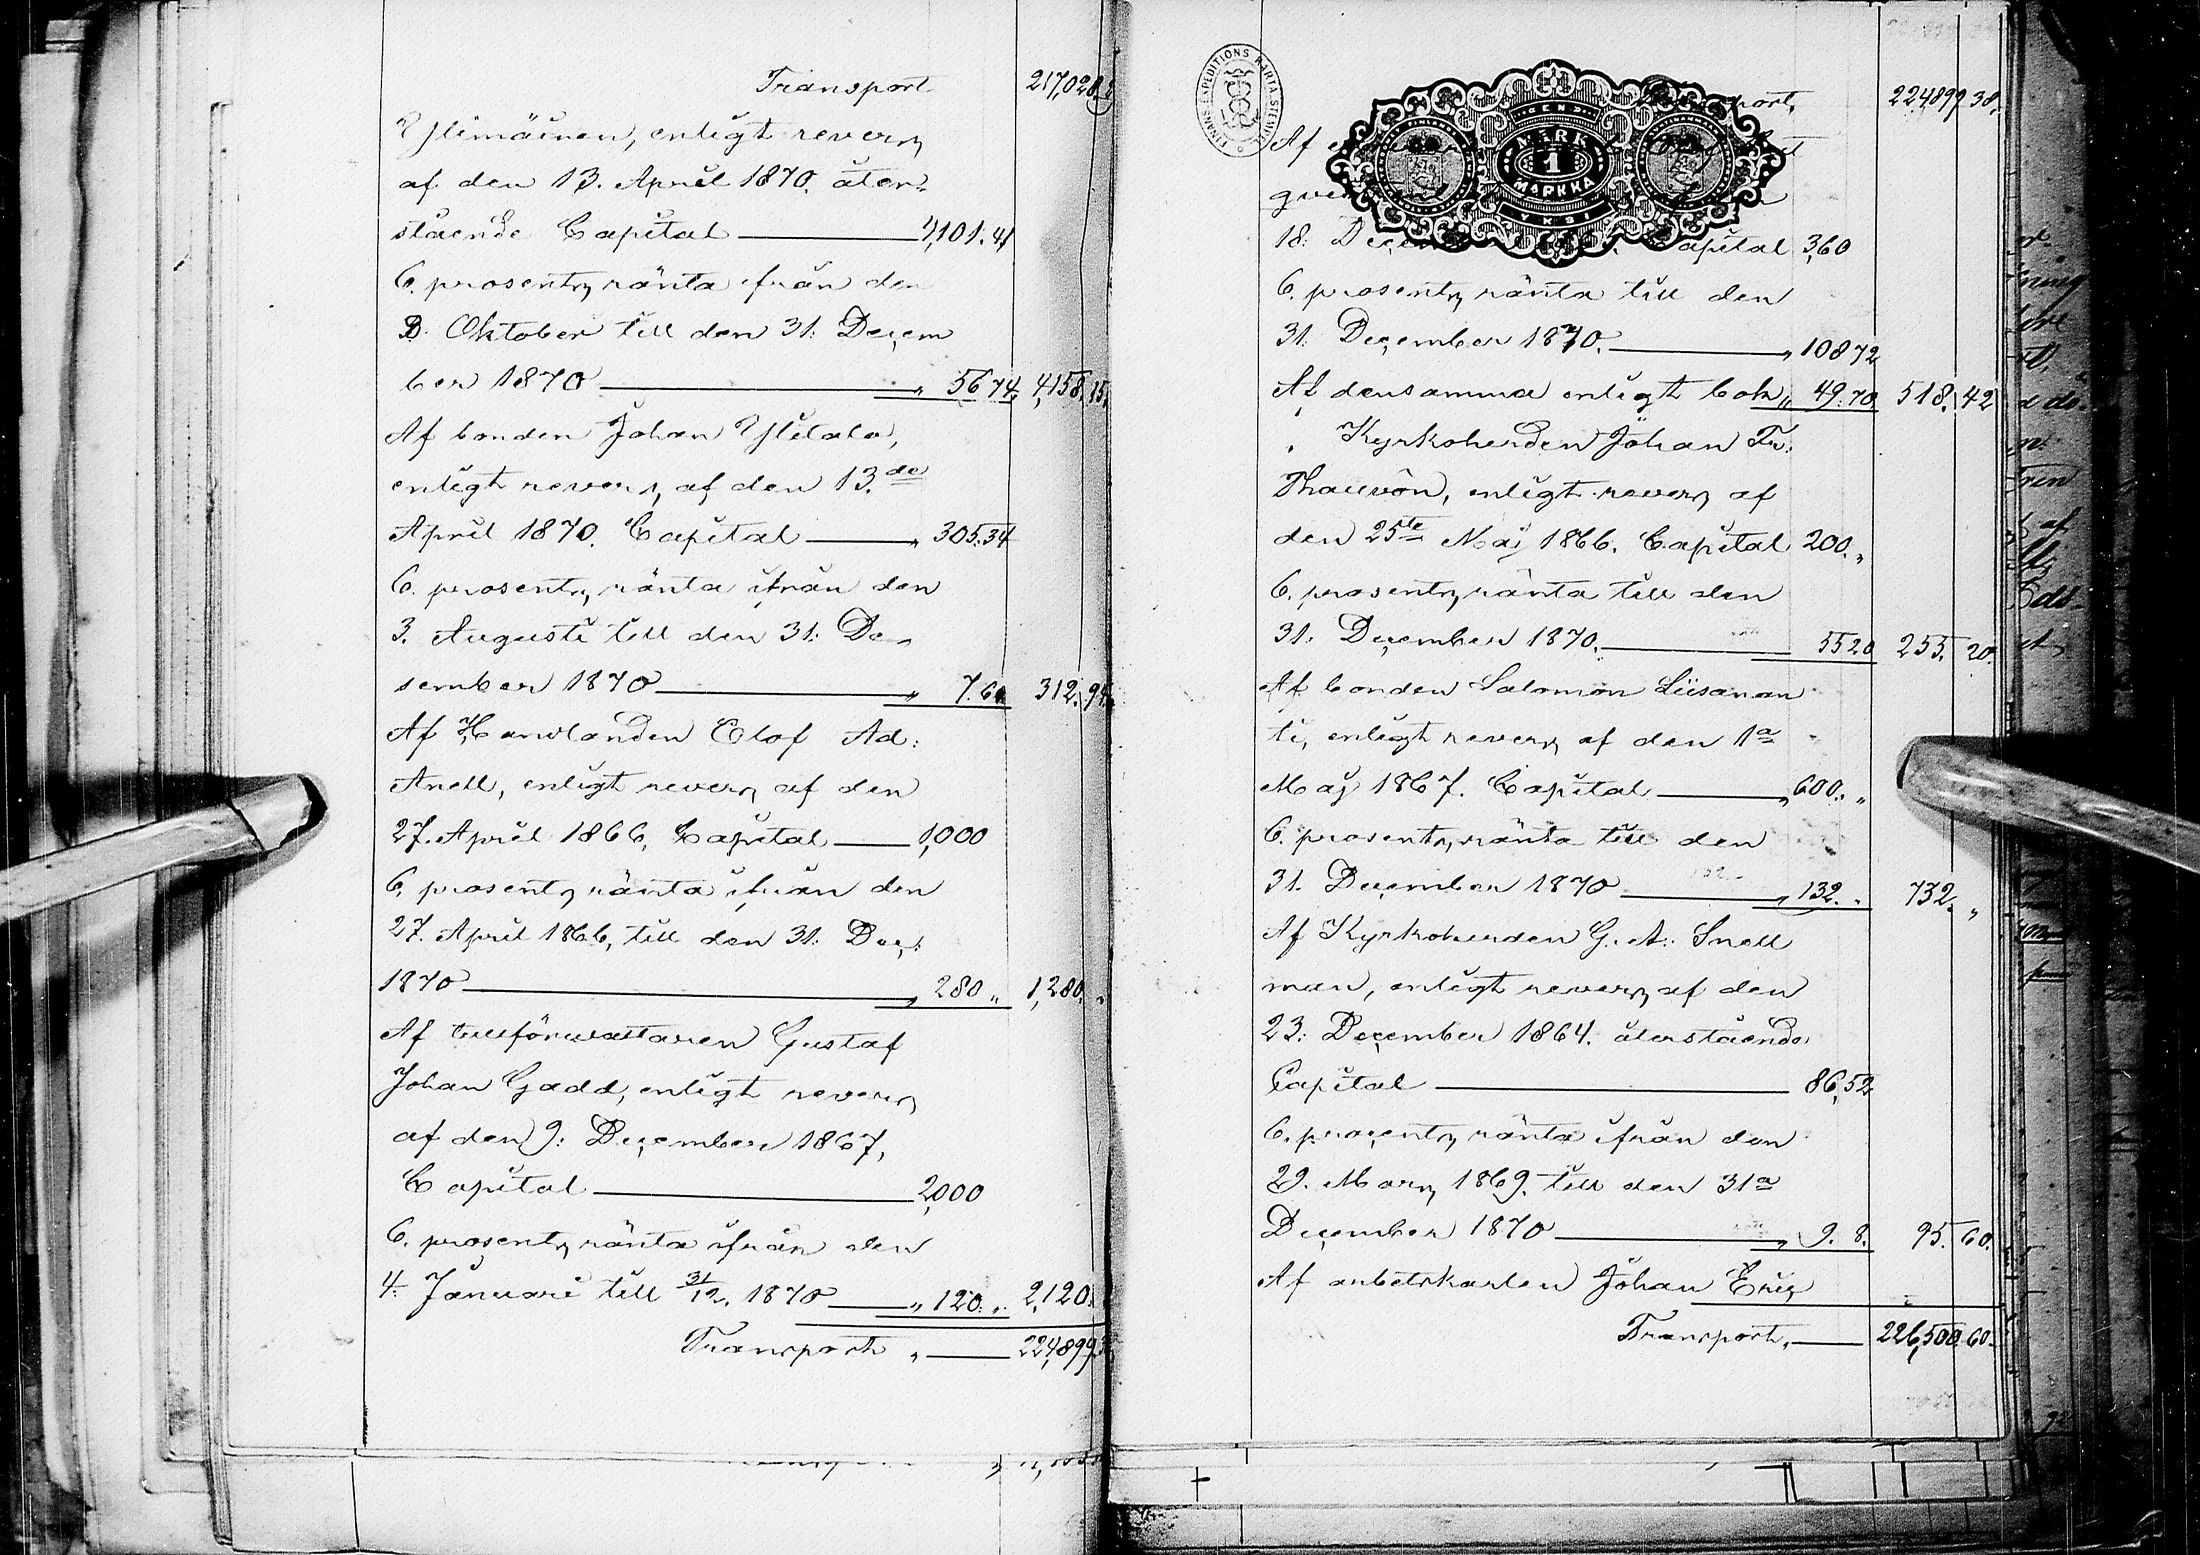 Transport 217,028
Ylimäinen, enligt revers
af den 13. April 1870. åter-
stående Capital 4,101.41
6. prosents ränta ifrån den
Oktober till den 31. Decem
ber 1870 " 56 74. 4,158.15.
Af bonden Johan Ylitalo,
enligt revers, af den 13.de
April 1870. Capital " 305.34
6. prosents ränta ifrån den
3. Augusti till den 31. De-
sember 1870 " 7.60. 312.94.
Af Handlanden Olof Ad:
Anell, enligt revers af den
27. April 1866, Capital 1,000
6. prosents ränta ifrån den
27. April 1866, till den 31. Dec:
1870 " 280 " 1,280. "
Af tullförvaltaren Gustaf
Johan Gadd, enligt revers
af den 9. December 1867,
Capital 2,000
6. prosents ränta ifrån den
4. Januari till 31/12. 1870 " 120. " 2,120.
Transport " 224,899.
FINANS-EXPEDITIONS KARTA-STEMPEL
EN MARK 1 MARKKA YKSI
Transport, 224,899 38.
Af
18: Capital 360
6. prosents ränta till den
31. December 1870. " 108 72
Af densamma enligt bok " 49.70 518. 42
" Kyrkoherden Johan Fr:
Thauvòn, enligt revers af
den 25te Maj 1866. Capital 200. "
6. prosents ränta till den
31. December 1870. 55 20 255. 20.
Af bonden Salomon Liisanan
ti, enligt revers af den 1a
Maj 1867. Capital " 600. "
6. prosents, ränta till den
31. December 1870 " 132. " 732. "
Af Kyrkoherden G. A. Snell
man, enligt revers af den
23. December 1864. återstående
Capital 86,52
6. procents ränta ifrån den
29. Mars 1869. till den 31a
December 1870 " 9. 8. 95. 60.
Af arbetskarlen Johan Eric
Transport, 226,500.60.